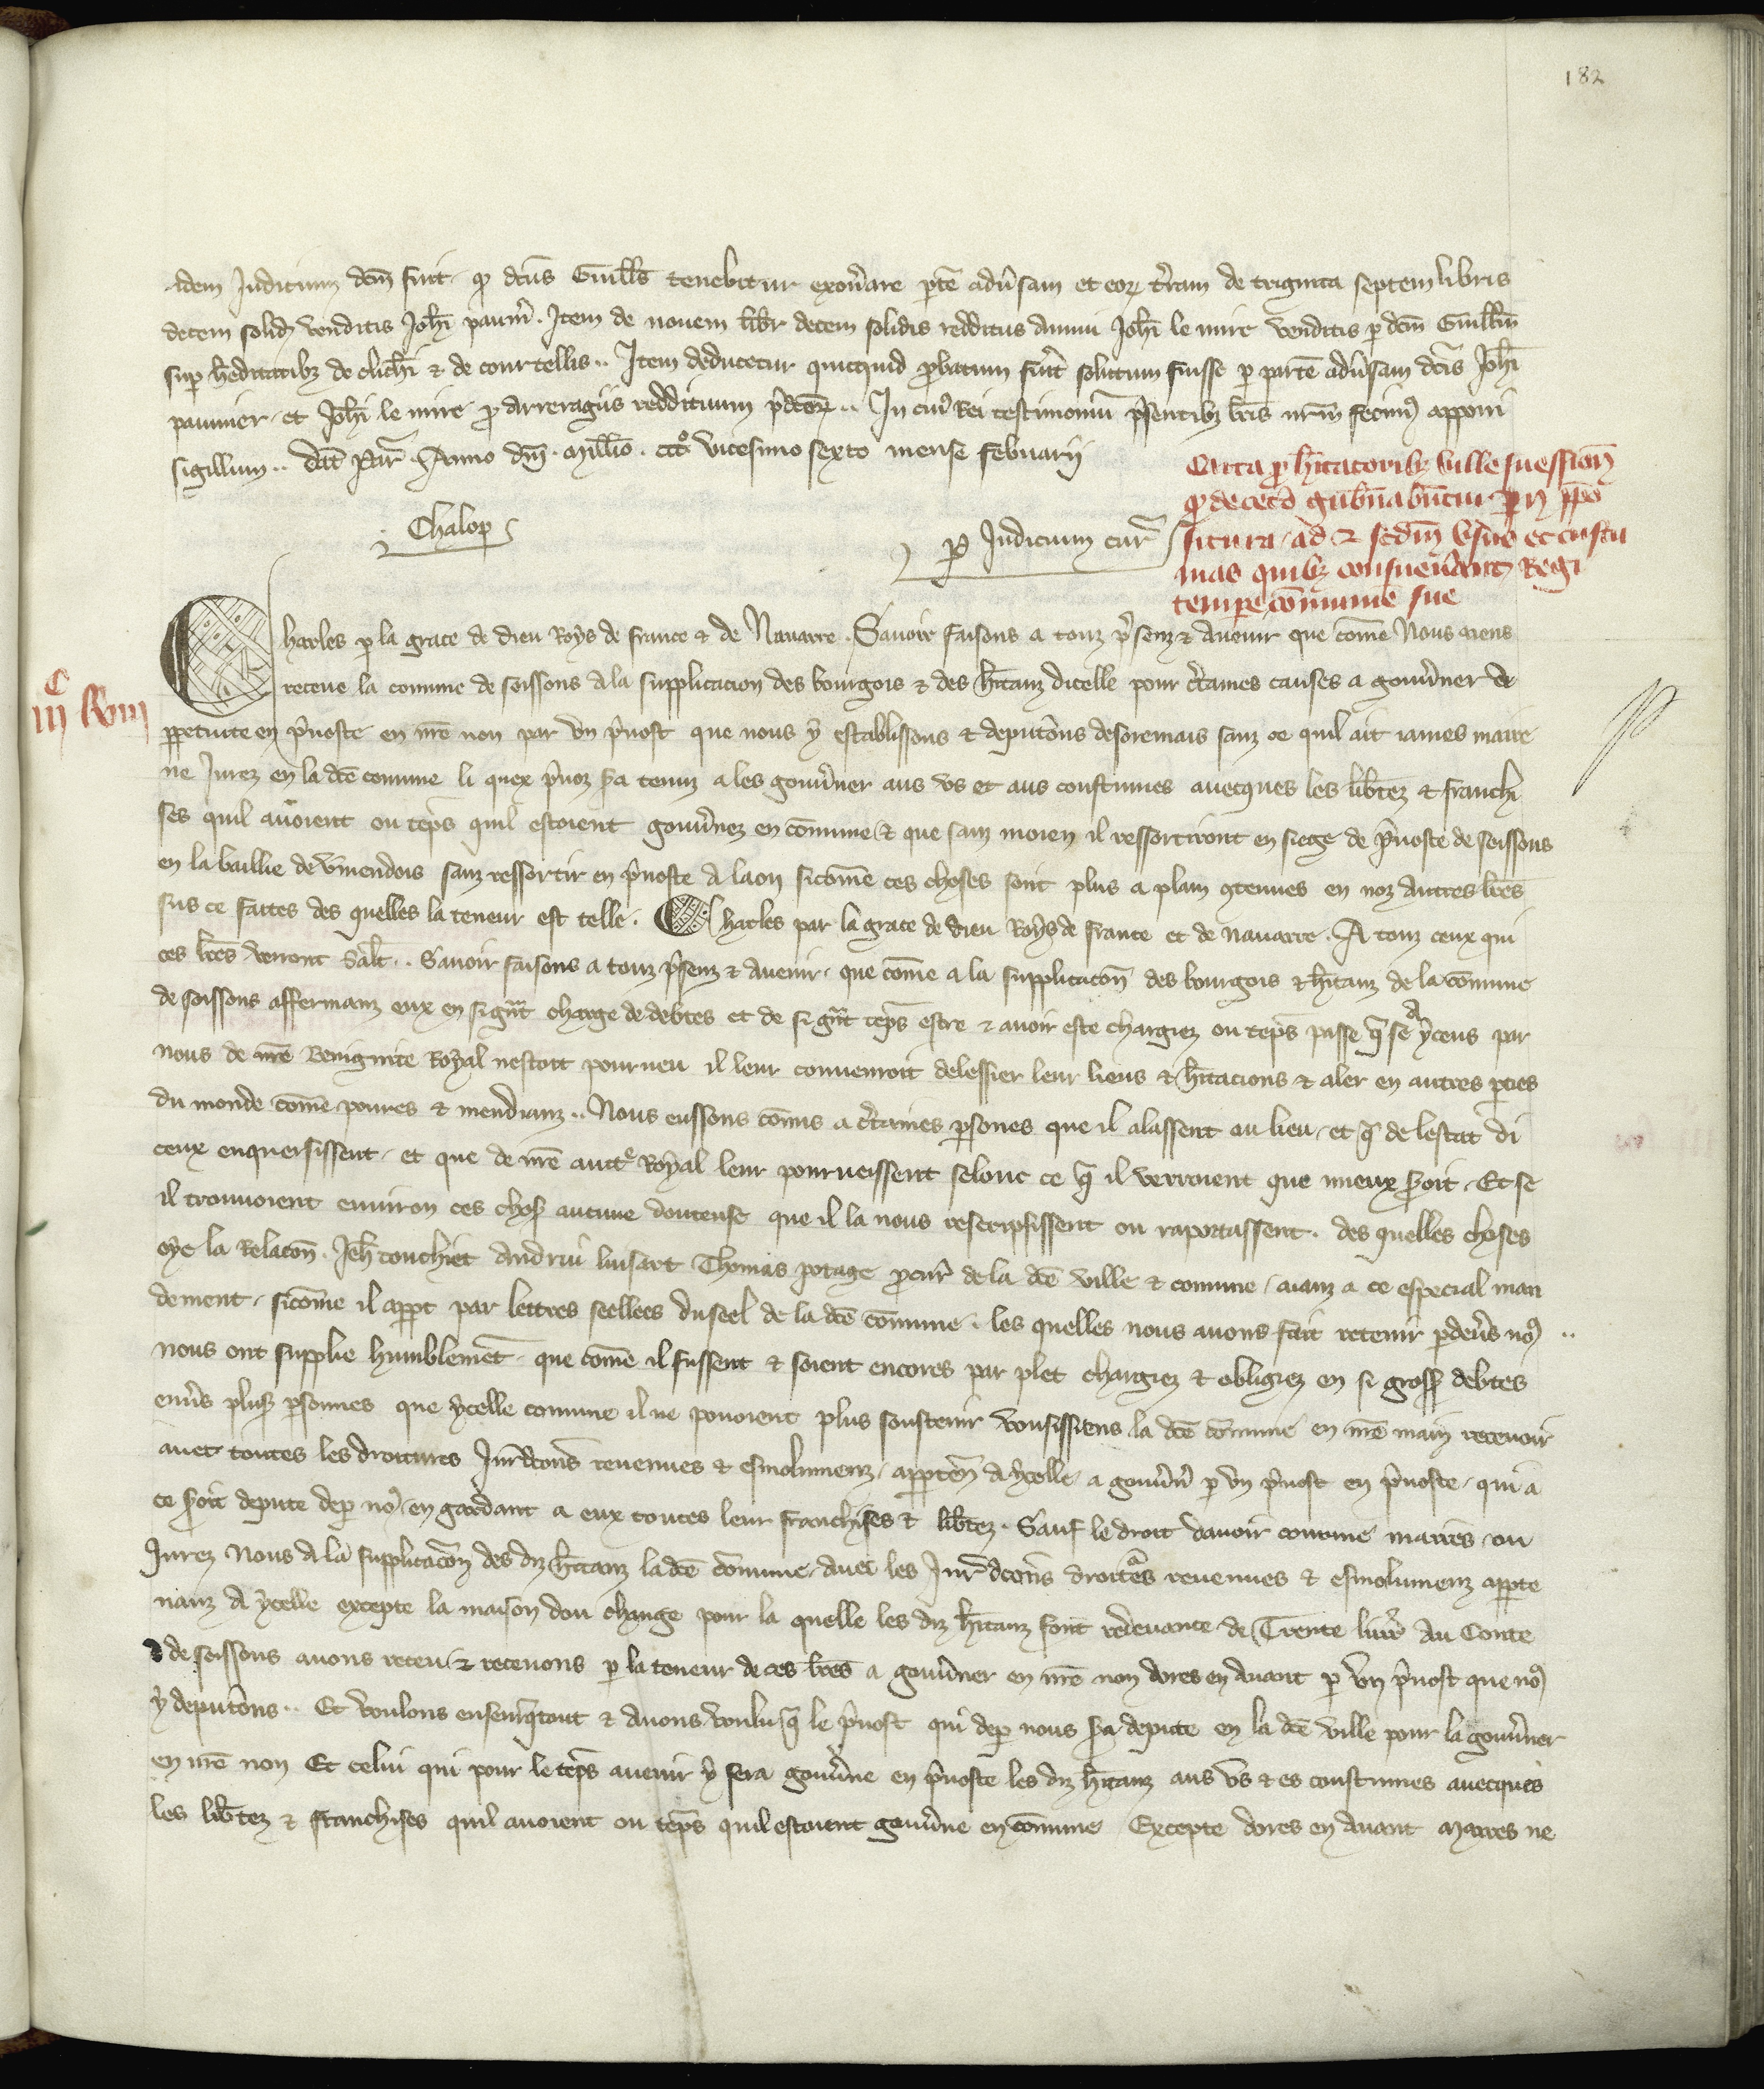 182
idem Judicium dcm̃ fuit q̃ dcũs Guill̃s tenebitur exoñare ptẽ adũsam et eor̃ t̃ram de triginta septem libris
decem solid̃ venditis Joh̃i paum̃. Item de nouem libr̃ decem solidis redditus annui Joh̃i le mire venditis p dcm̃ Guill̃m
sup h̃editatibz de clich̃i & de courtellis.. Item deducetur quicquid p̃batum fũit solutum fuisse p partẽ adũsam dc̃is Joh̃i
paumier et Joh̃i le mire p̃ arreragiis reddituum p̃dc̃or̃.. In cuĩ Rei testimoniũ p̃sentibz lr̃is nr̃m̃ fecimꝰ apponi
sigillum.. dat̃ par̃. Anno dm̃. mill̃io. cccᵒ vicesimo sexto mense februarij
Chalop
p Judicium cur̃
Carta p̃ h̃itatoribz ville suessioñ
q̃ de ceto gub̃nabuntur p̃ ppo
situra ad & scdm̃ vsus et custu
mas quibz consueũant Regi
tempe cõmunie sue
C
iij xviij
Charles p la grace de dieu Roys de france & de Nauarre. Sauoir faisons a touz p̃senz & auenir que cõme Nous aiens
receue la comune de soissons a la supplicacion des bourgois & des h̃itanz dicelle pour c̃taines causes a gouũner de
ppetuite en p̃uoste en nr̃e non par vn p̃uost que nous y establissons & deputõns desoremais sanz ce quil ait iames maire
ne Jurez en la dc̃e comune li quex p̃uoz s̃a tenuz a les gouũner aus vs et aus coustumes auecques les lib̃tez & franchi
ses quil auoient ou tẽps quil estoient gouũnez en cõmune & que sanz moien il ressortiront en siege de p̃uoste de soissons
en la baillie de ṽmendois sanz ressortir en p̃uoste a laon sicõme ces choses sont plus a plain 9tenues en noz autres lr̃es
sus ce faites des quelles la teneur est telle. Charles par la grace de dieu Roys de france et de nauarre. A touz ceux qui
ces lr̃es verront Salt̃.. Sauoir faisons a touz p̃senz & auenir que cõme a la supplicacõn des bourgois & h̃itanz de la cõmune
de soissons affermanz eux en si gñt charge de debtes et de si gñt tẽps estre & auoir este chargiez ou tẽps passe q̃ se a yceus par
nous de nr̃e Benignite Royal nestoit pourueu il leur conuenroit delessier leur lieus & h̃itacions & aler en autres pties
du monde cõme poures & mendianz.. Nous eussons cõmis a c̃taines psones que il alassent au lieu et q̃ de lestat di
ceux enquersissent et que de nr̃e auctᵉ Royal leur pourueissent selonc ce q̃ il verroient que mieux s̃oit. Et se
il trouuoient enuiron ces chos̃ aucune doutense que il la nous rescripsissent ou raportassent. des quelles choses
oye la Relacõn. Jeh̃ couchiet Andriu luisart Thomas potage p̃cur̃ de la dc̃e ville & comune aianz a ce especial man
dement sicõme il appt par lettres seellees du seel de la dc̃e cõmune. les quelles nous auons fait retenir pdeũs noꝰ ..
nous ont supplie humblemẽt que cõme il fussent & soient encores par plet chargiez & obligiez en si gross̃ debtes
enũs plus̃ psonnes que ycelle comune il ne pouoient plus soustenir vousissiens la dc̃e cõmune en nr̃e main receuoir
auec toutes les droitures Jur̃dcõns reuenues & esmolumenz apptẽn a ycelle a gouũñ p vn p̃uost en p̃uoste qui a
ce s̃oit depute dep noꝰ en gardant a eux toutes leur franchises & lib̃tez. Sauf le droit dauoir comune maires ou
Jurez Nous a la supplicacõn des diz h̃itanz la dc̃e cõmune auec les Jur̃dcõns droitᵃes reuenues & esmolumenz appte
nanz a ycelle excepte la maison dou change pour la quelle les diz h̃itanz sont redeuance de Trente liur̃ Au Conte
de soissons auons receu & receuons p la teneur de ces lr̃es a gouũner en nr̃e non dores en auant p vn p̃uost que noꝰ
y deputõns.. Et voulons ensem̃q̃tout & auons voulu q̃ le p̃uost qui dep nous s̃a depute en la dc̃e ville pour la gouũner
en nr̃e non Et celui qui pour le tẽps auenir y sera gouũne en p̃uoste les diz h̃itanz aus vs & es coustumes auecques
les lib̃tez & franchises quil auoient ou tẽps quil estoient gouũne en cõmune Excepte dores en auant Maires ne